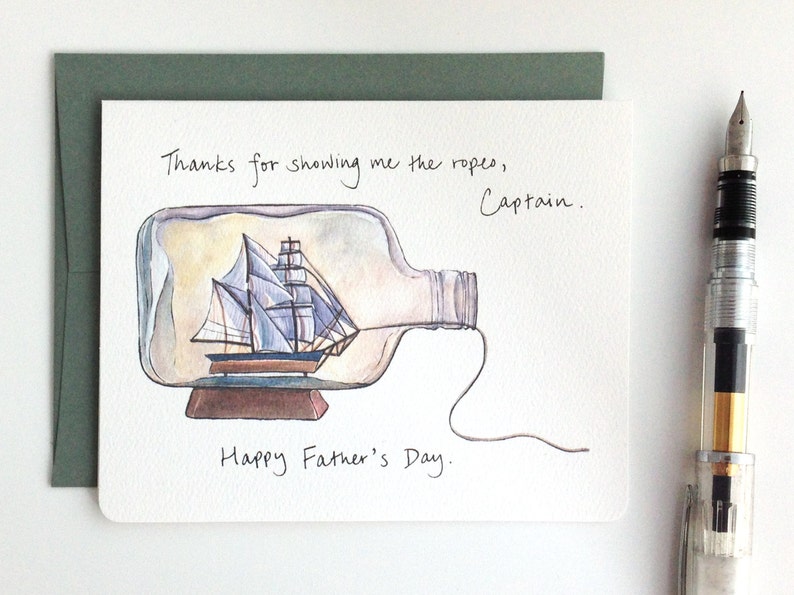 Thanks for showing me the ropes,
Captain.
Happy Father's Day.